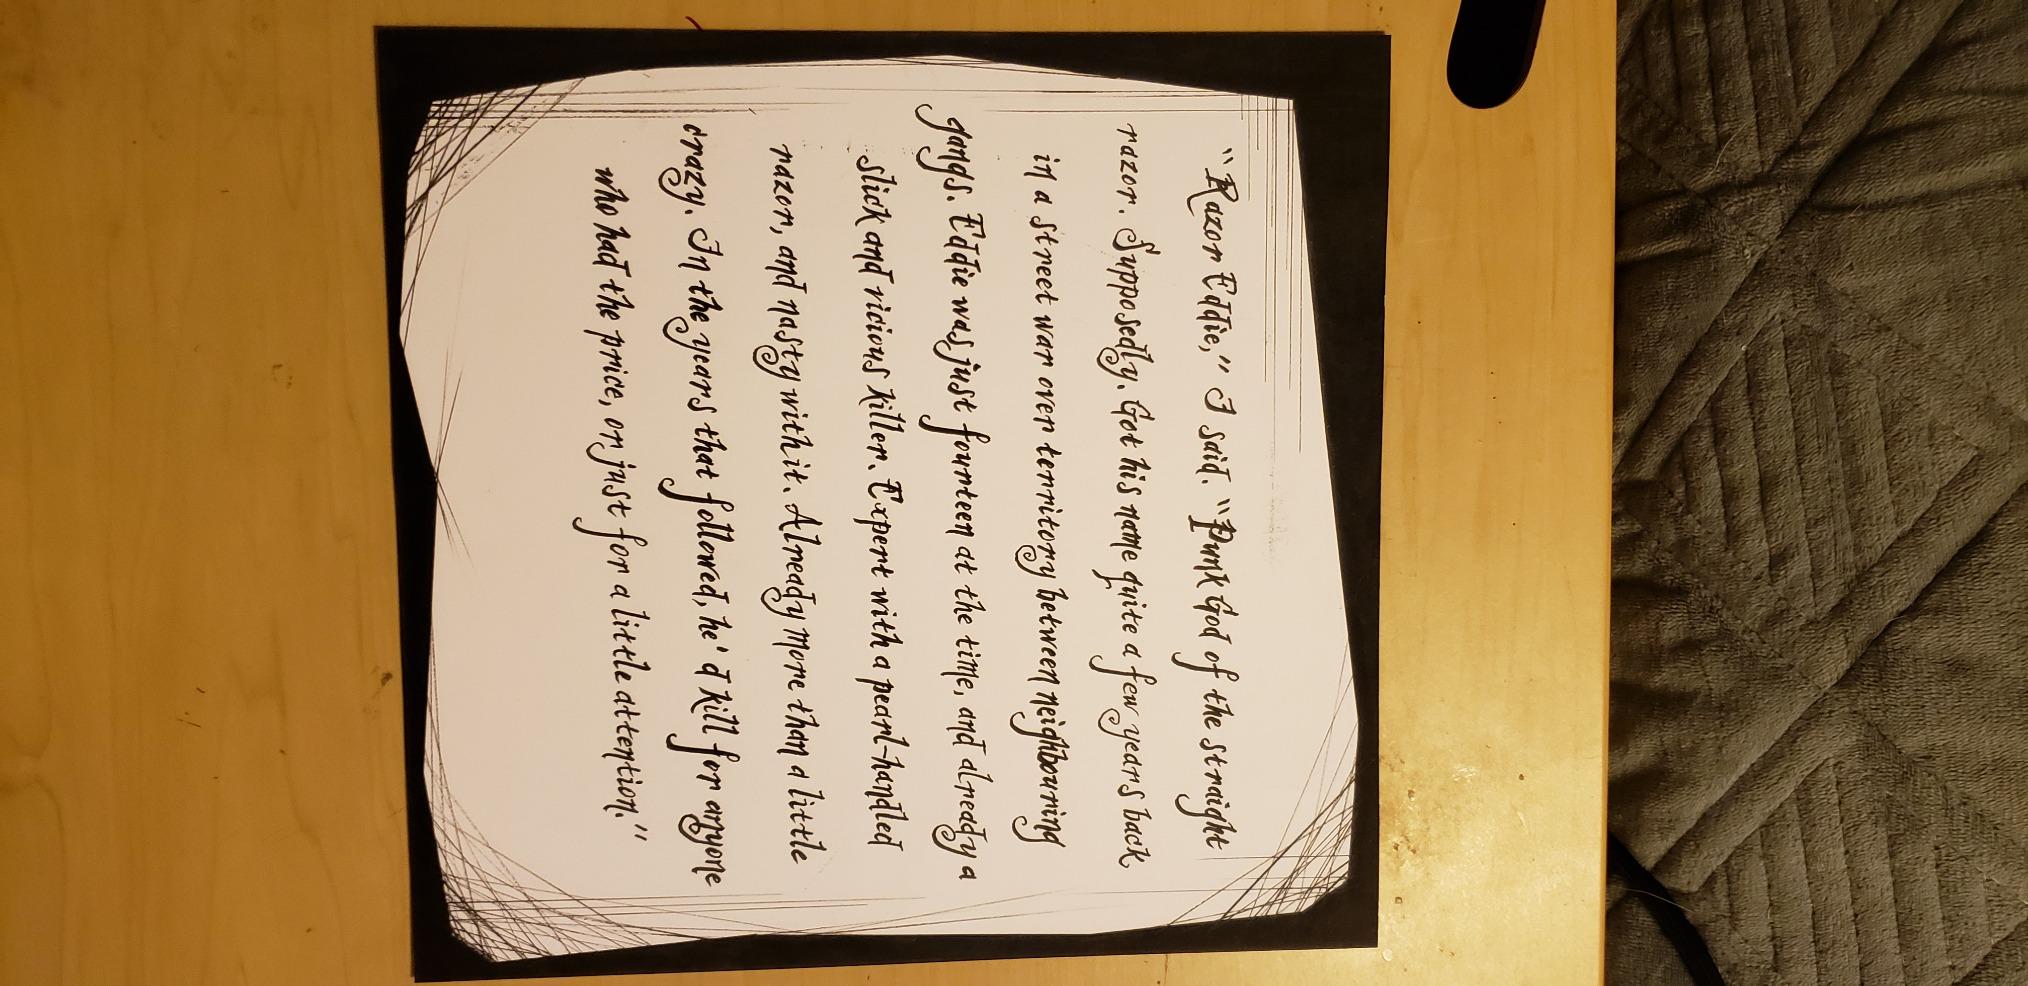 "Razor Eddie," I said. "Punk God of the straight
razor. Supposedly. Got his name quite a few years back
in a street war over territory between neighbouring
gangs. Eddie was just fourteen at the time, and already a
slick and vicious killer. Expert with a pearl-handled
razor, and nasty with it. Already more than a little
crazy. In the years that followed, he'd kill for anyone
who had the price, or just for a little attention."